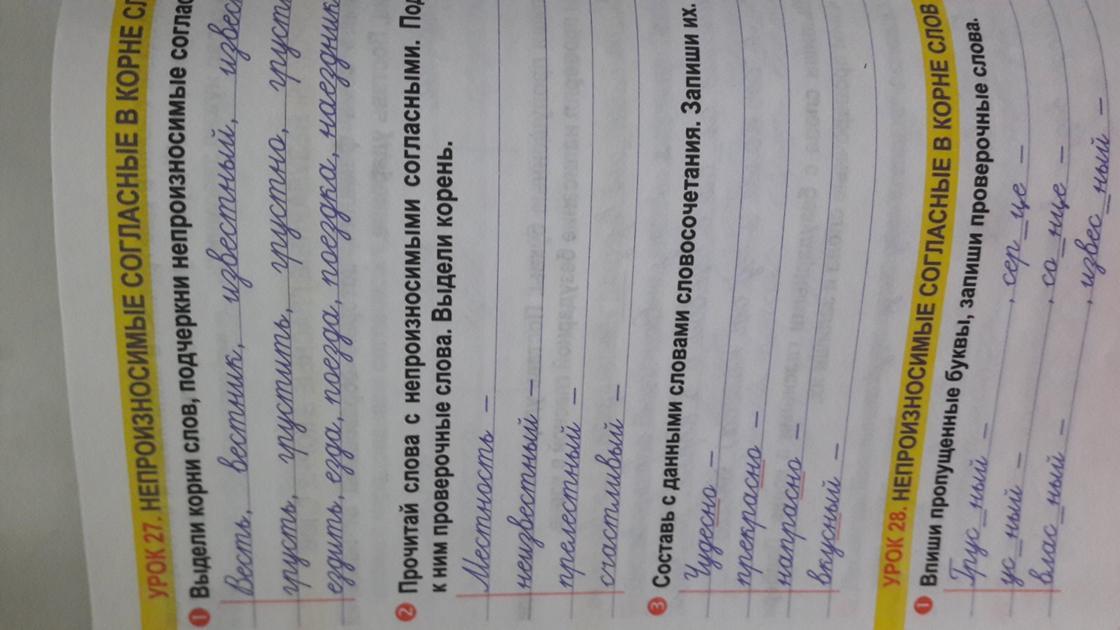 УРОК 27. НЕПРОИЗНОСИМЫЕ СОГЛАСНЫЕ В КОРНЕ
1 Выдели корни слов, подчеркни непроизносимые
Весть, вестник, известный,
грусть, грустить, грустно,
ездить, езда, поезда, поездка,
2 Прочитай слова с непроизносимыми согласными.
к ним проверочные слова. Выдели корень.
Местность –
неизвестный –
прелестный –
счастливый –
3 Составь с данными словами словосочетания. Запиши их.
Чудесно –
прекрасно –
напрасно –
вкусный –
УРОК 28. НЕПРОИЗНОСИМЫЕ СОГЛАСНЫЕ В КОРНЕ СЛОВ
1 Впиши пропущенные буквы, запиши проверочные слова.
Грус_ный – , сер_це –
ус_ный – , со_нце –
влас_ный – , извес_ный –